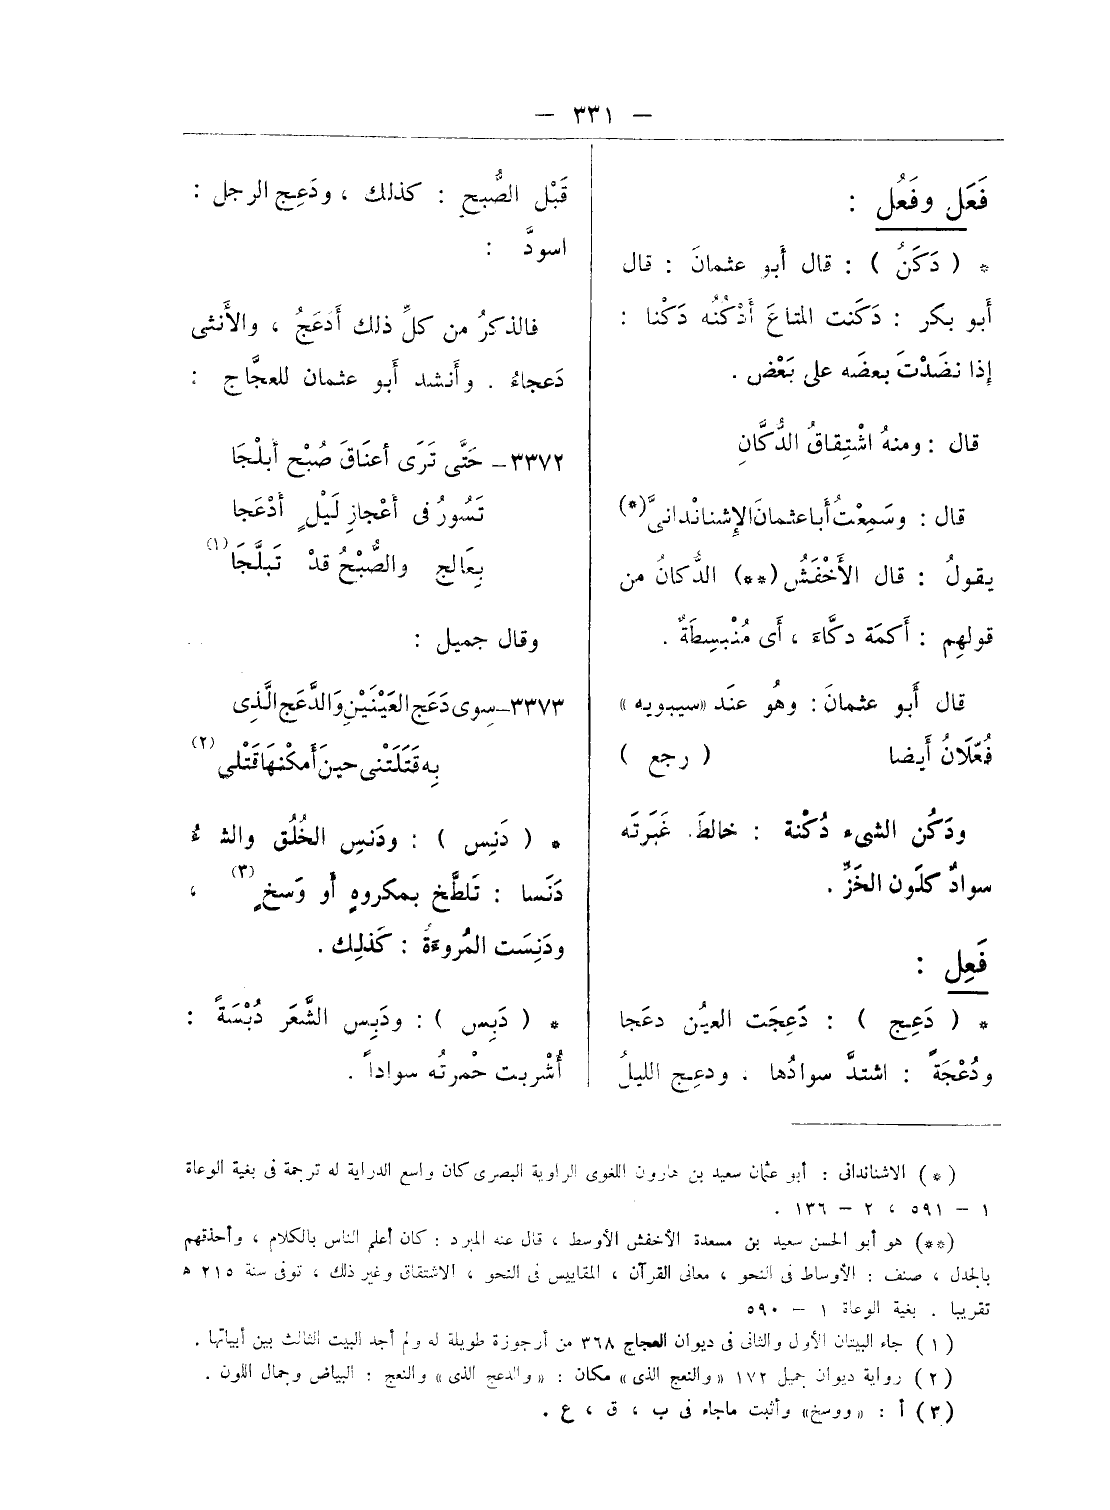 — ٣٣١ —
فَعَل وفَعُل :
* ( دَكَنُ ) : قال أَبو عثمانَ : قال
أَبو بكر : دَكَنت المتاعَ أَدْكُنُه دَكْنا :
إذا نضَدْتَ بعضَه على بَعْض .
قال : ومنهُ اشْتِقاقُ الدُّكَّانِ
قال : وسَمِعْتُ أَباعثمانَ الإِشنانْدانىَّ(*)
يقولُ : قال الأَخْفَشُ (**) الدُّكانُ من
قولهِم : أَكمَة دكَّاءَ ، أَى مُنْبسِطَةٌ .
قال أَبو عثمانَ : وهُو عنَد «سيبويه»
فُعّلَانُ أَيضا ( رجع )
ودَكُن الشىء دُكْنة : خالطَ غَبَرتَه
سوادٌ كلَون الخَزِّ .
فَعِل :
* ( دَعِج ) : دَعِجَت العيُن دعَجا
ودُعْجَةً : اشتدَّ سوادُها . ودعِج الليلُ
قَبْل الصُّبح : كذلك ، ودَعِج الرجل :
اسودَّ :
فالذكرُ من كلِّ ذلك أَدعَجُ ، والأَنثى
دَعجاءُ . وأَنشد أَبو عثمان للعجَّاج :
٣٣٧٢ – حَتَّى تَرَى أعنَاقَ صُبْح أَبلْجَا
تَسُورُ فى أعْجازِ لَيْلٍ أَدْعَجا
بِعَالج والصُّبْحُ قدْ تَبلَّجَا (١)
وقال جميل :
٣٣٧٣ – سِوى دَعَج العَيْنَيْنِ وَالدَّعَج الَّذِى
بِه قَتَلَتْنى حينَ أَمكْنهَا قَتْلى (٢)
* ( دَنِس ) : ودَنسِ الخُلُق والش ءُ
دَنَسا : تَلطَّخ بمكروهٍ أَو وَسخٍ (٣) ،
ودَنِسَت المُروءَةُ : كَذلِك .
* ( دَبِس ) : ودَبِس الشَّعَر دُبْسَةً :
أُشْربت حْمرتُه سواداً .
(*) الاشناندانى : أبو عثمان سعيد بن هارون اللغوى الراوية البصرى كان واسع الدراية له ترجمة فى بغية الوعاة
١ – ٥٩١ ، ٢ – ١٣٦ .
(**) هو أبو الحسن سعيد بن مسعدة الأخفش الأوسط ، قال عنه المبرد : كان أعلم الناس بالكلام ، وأحذقهم
بالجدل ، صنف : الأوساط فى النحو ، معانى القرآن ، المقاييس فى النحو ، الاشتقاق وغير ذلك ، توفى سنة ٢١٥ ه
تقريبا . بغية الوعاة ١ – ٥٩٠
(١) جاء البيتان الأول والثانى فى ديوان العجاج ٣٦٨ من أرجوزة طويلة له ولم أجد البيت الثالث بين أبياتها .
(٢) رواية ديوان جميل ١٧٢ «والنعج الذى» مكان : «والدعج الذى» والنعج : البياض وجمال اللون .
(٣) أ : «ووسخ» وأثبت ماجاء فى ب ، ق ، ع .